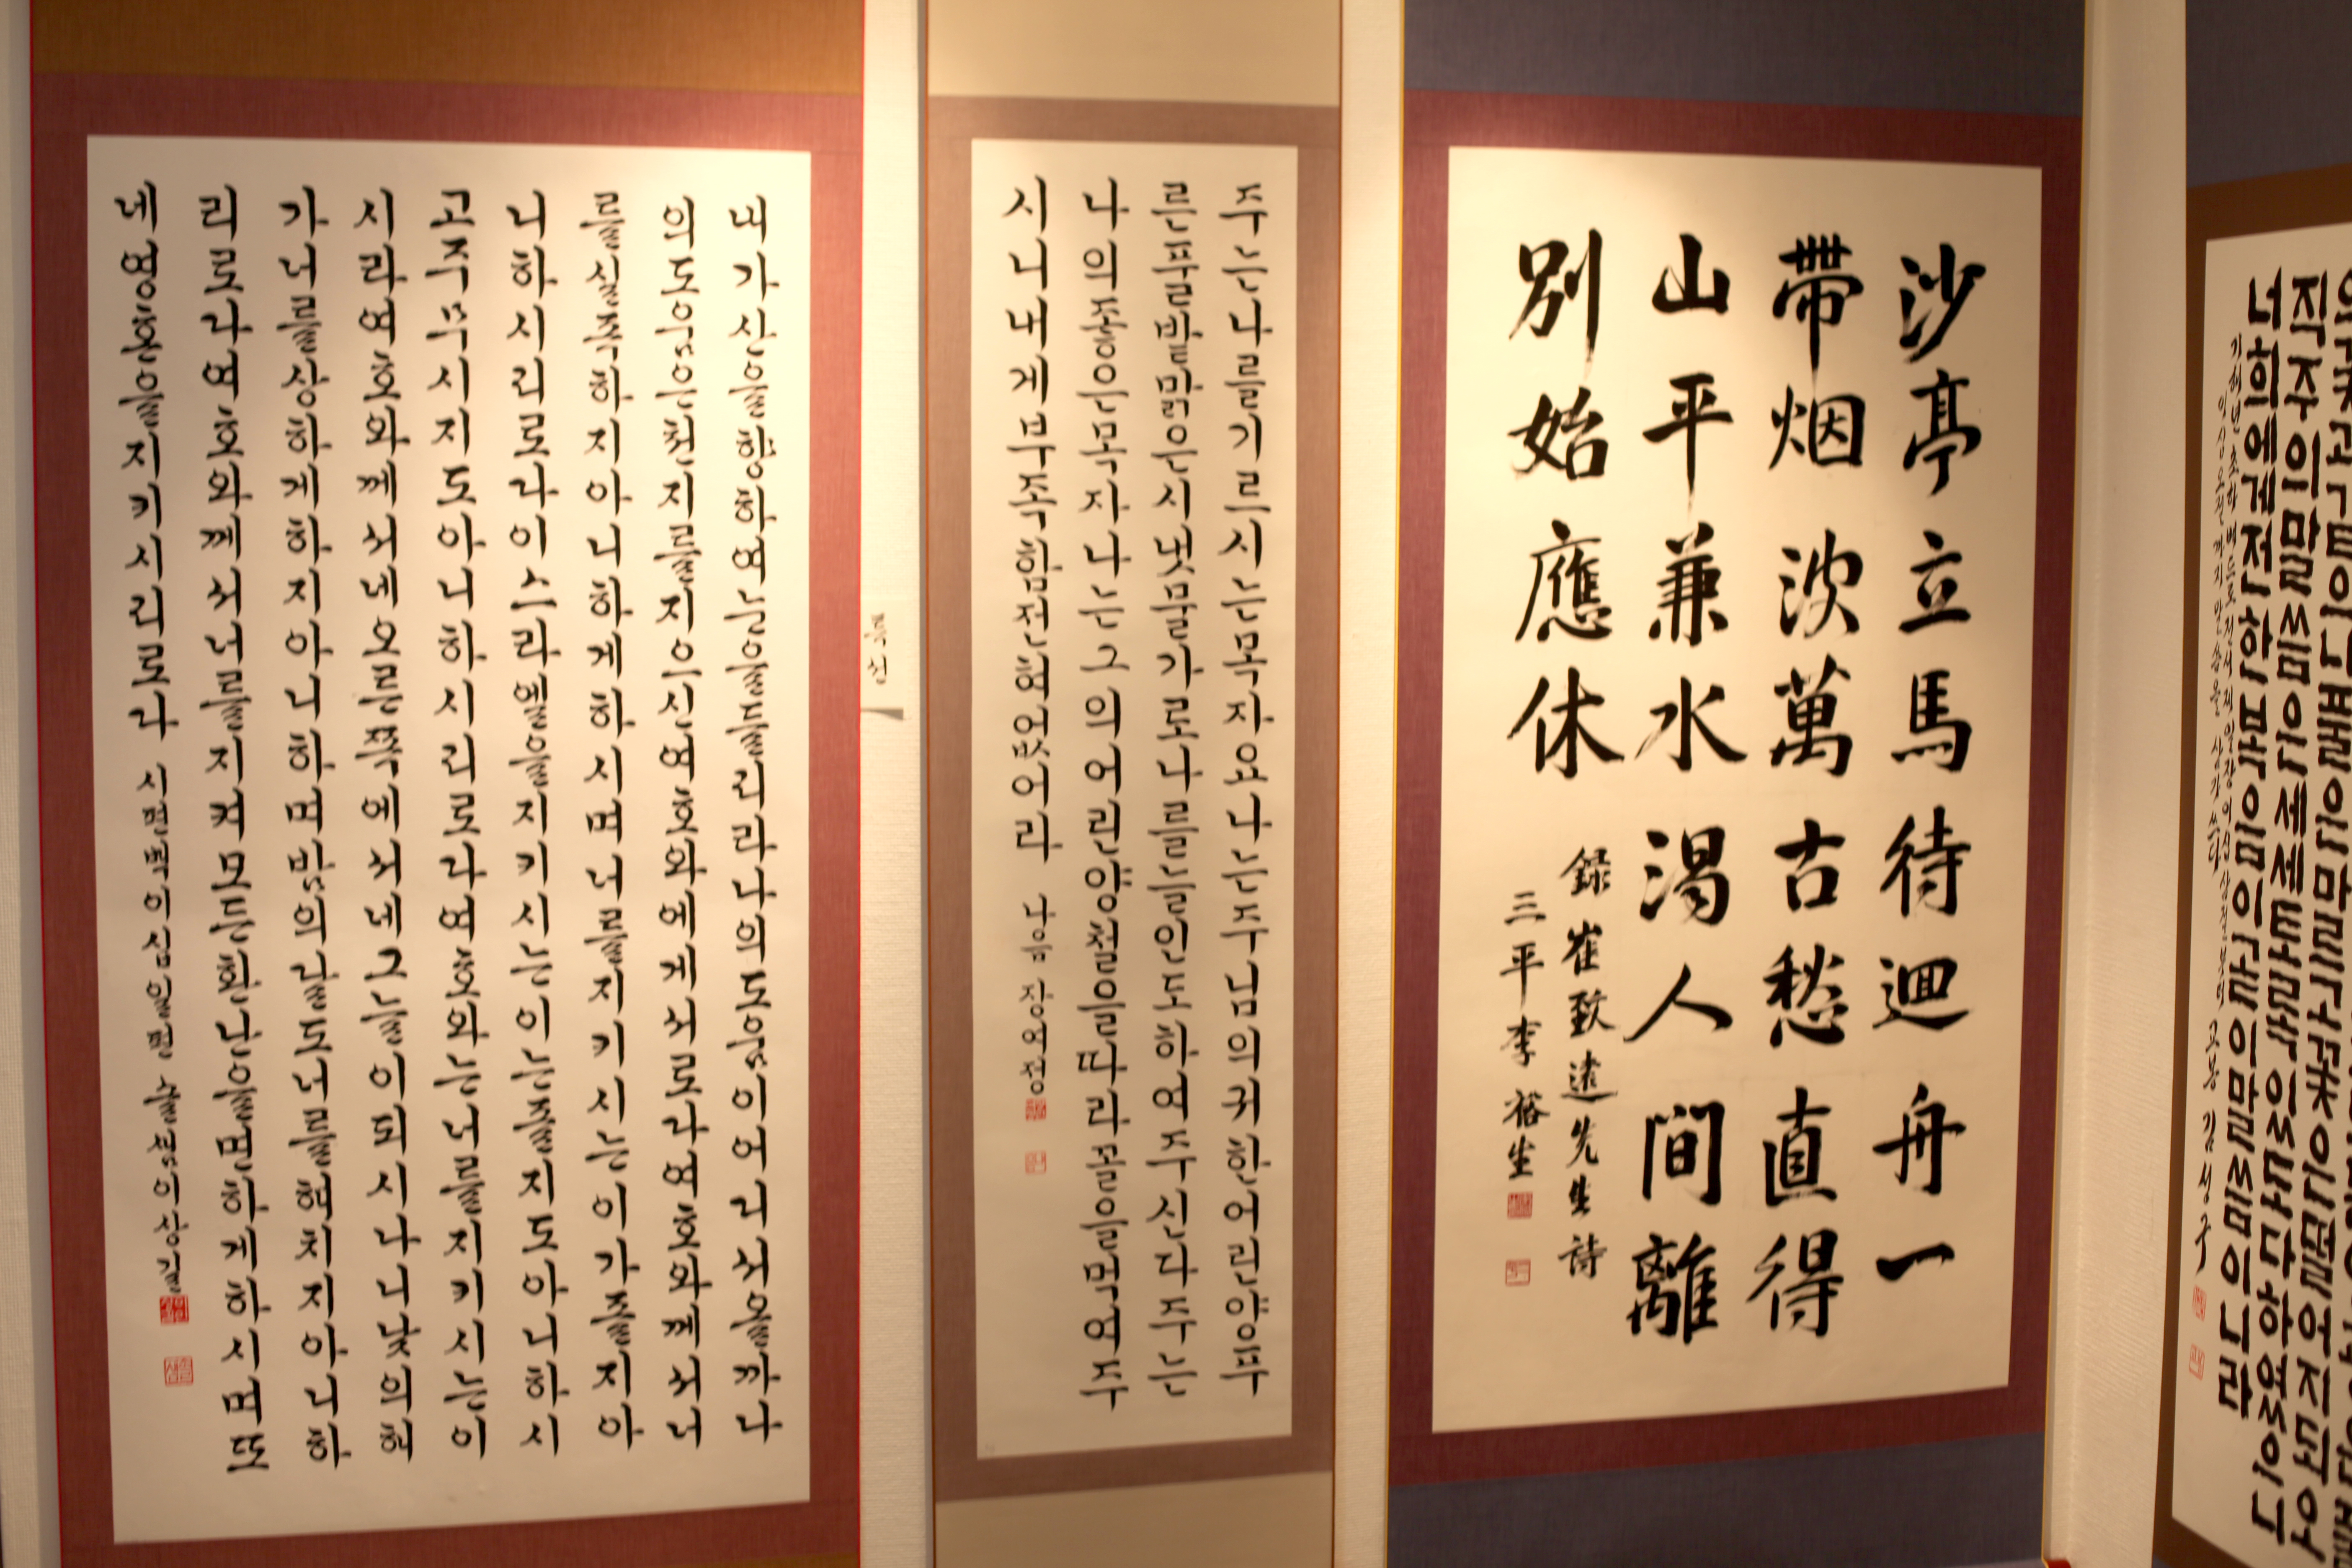 내가산을향하여눈을들리라나의도움이어디서올까나
의도움은천지를지으신여호와에게서로다여호와께서너
를실족하지아니하게하시며너를지키시는이가졸지아
니하시리로다이스라엘을지키시는이는졸지도아니하시
고주무시지도아니하시리로다여호와는너를지키시는이
시라여호와께서네오른쪽에서네그늘이되시나니낮의해
가너를상하게하지아니하며밤의달도너를해치지아니하
리로다여호와께서너를지켜모든환난을면하게하시며또
네영혼을지키시리로다 시편백이십일편 늘샘이상길
특선
주는나를기르시는목자요나는주님의귀한어린양푸
른풀밭맑은시냇물가로나를늘인도하여주신다주는
나의좋은목자나는그의어린양철을따라꼴을먹여주
시니내게부족함전혀없어라
沙亭立馬待迴舟一
帶烟波萬古愁直得
山平兼水渴人間離
別始應休
錄崔致遠先生詩
三平李裕生
마르고꽃이떨어지되오
직주의말씀은세세토록있도다하였으니
너희에게전한복음이곧이말씀이니라